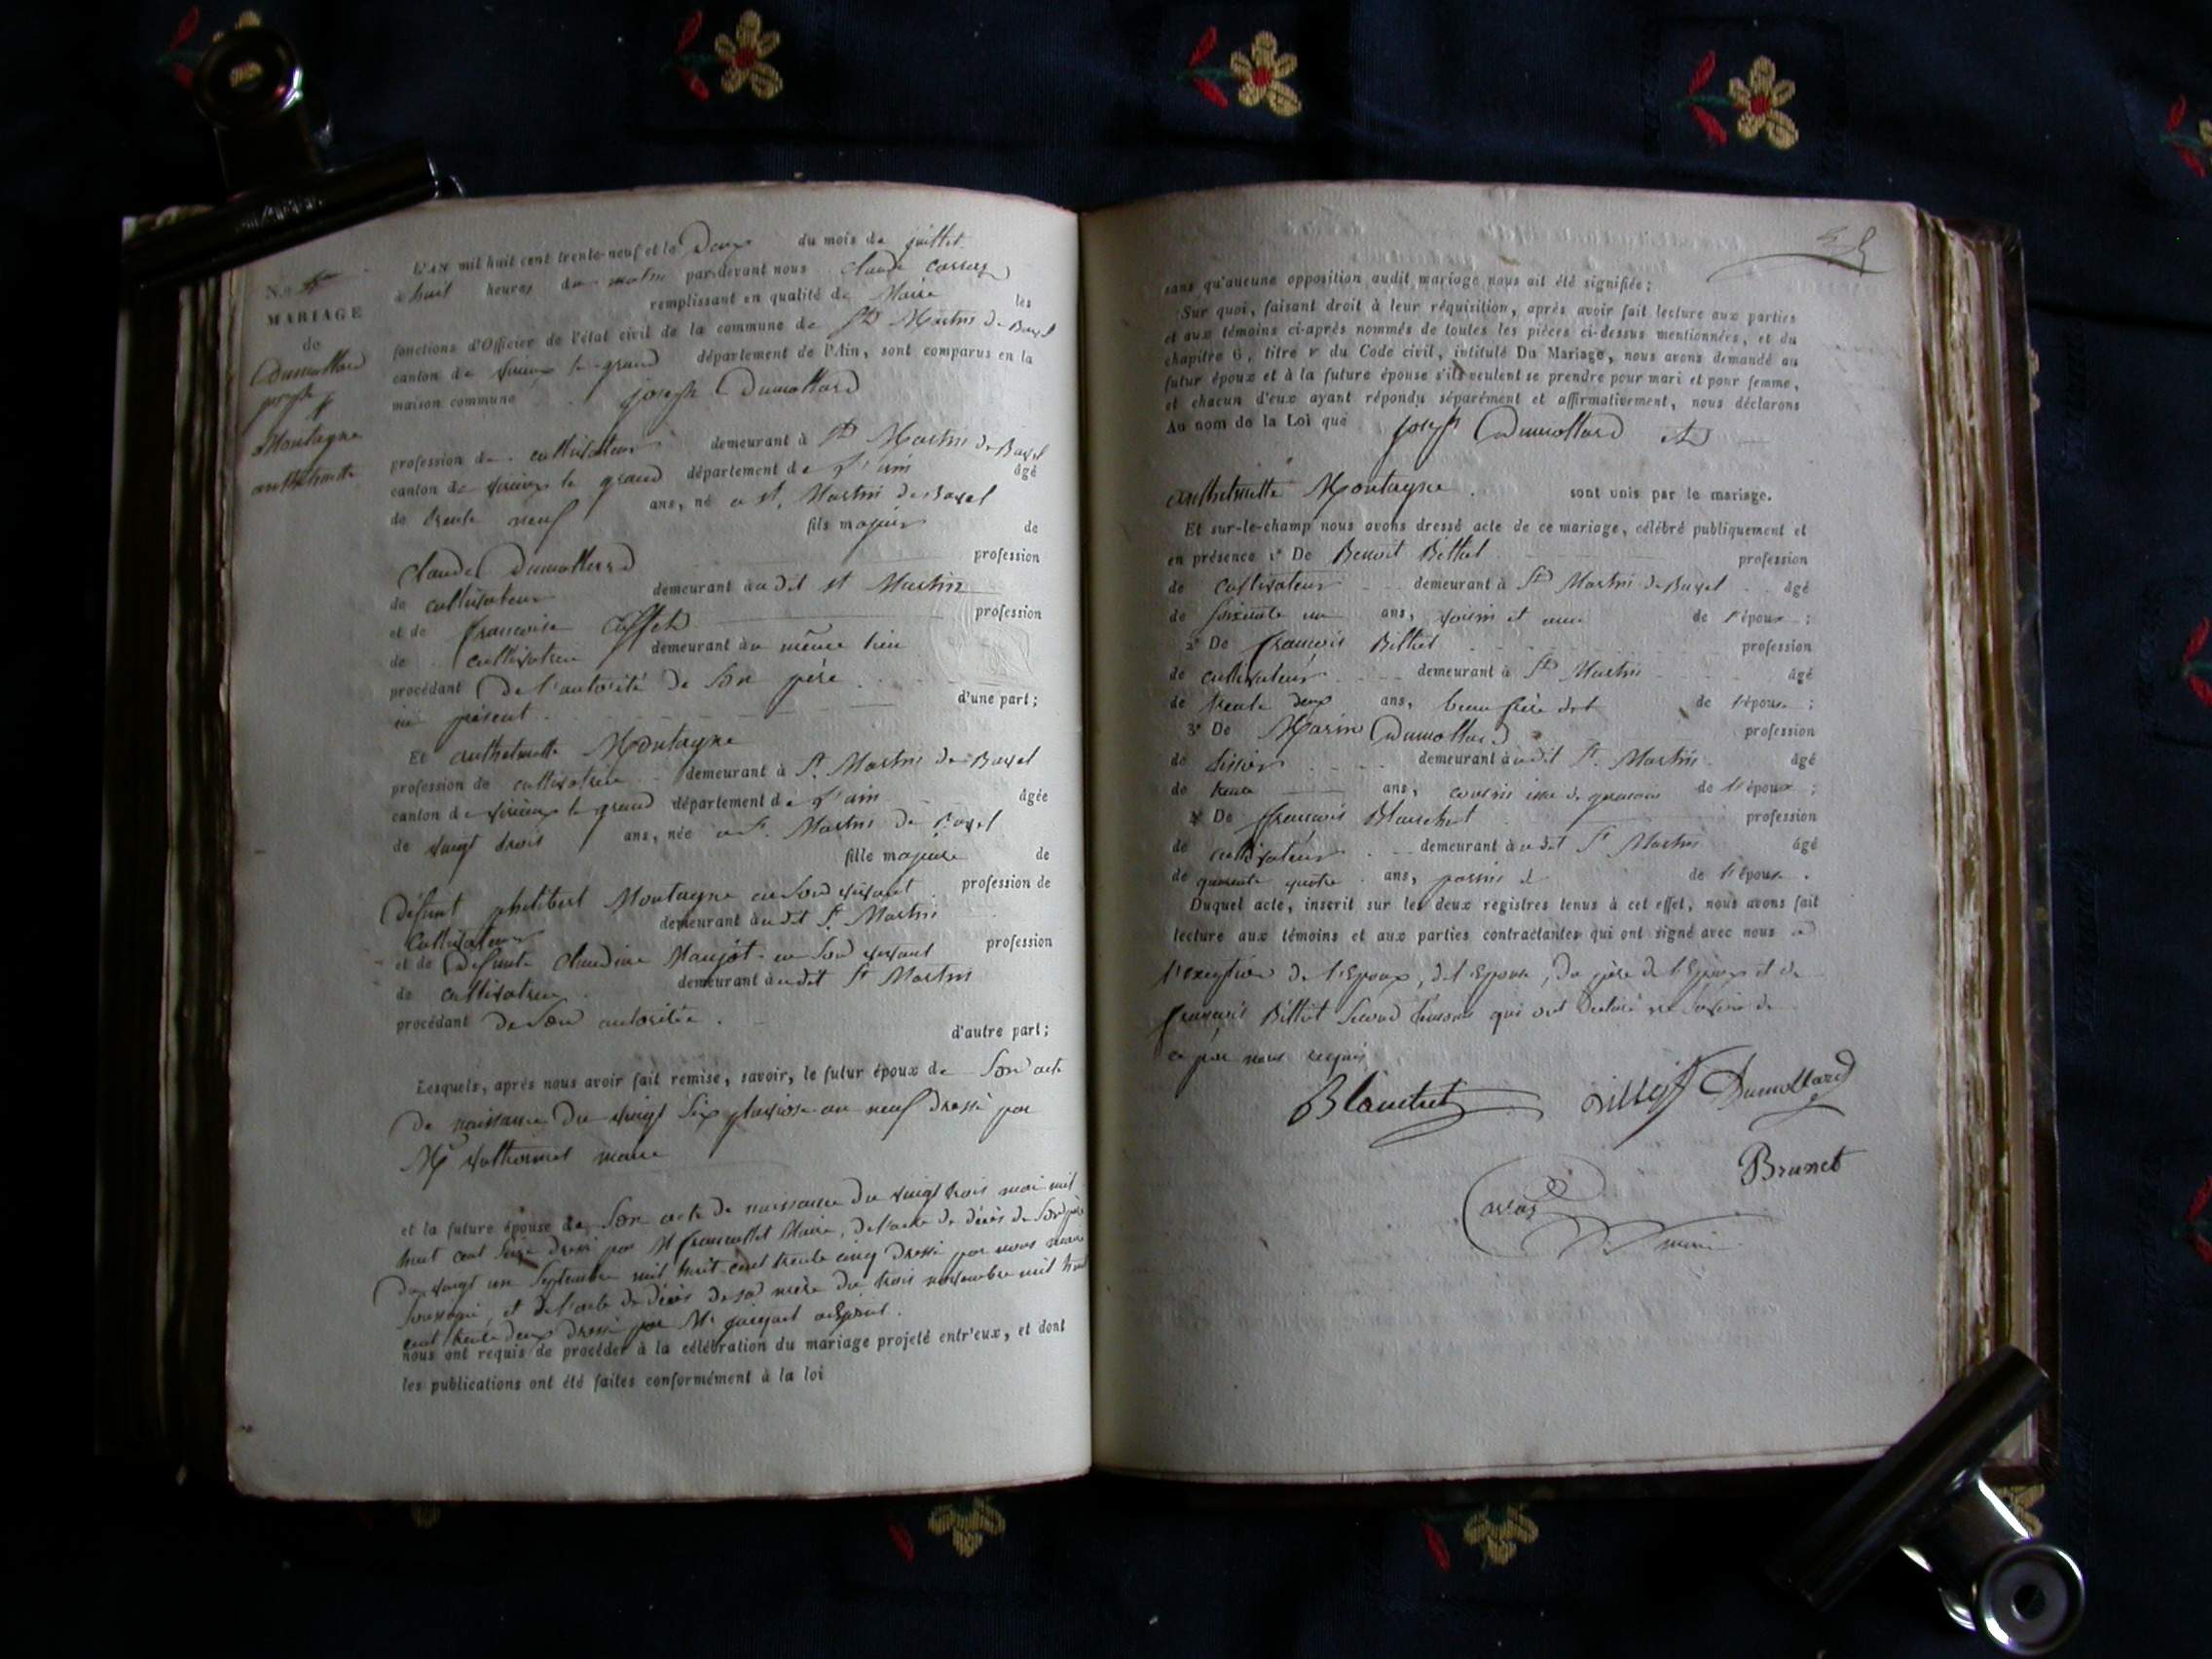 N.o
MARIAGE
de
Dumollard
joseph
et
Montagne
anthelmette
L'AN mil huit cent trente-neuf et le Deux du mois de juillet
à huit heures du matin par-devant nous Claude
remplissant en qualité de Maire les
fonctions d'Officier de l'état civil de la commune de St Martin de Bavel
canton de virieux le grand département de l'Ain, sont comparus en la
maison commune joseph Dumollard
profession de cultivateur demeurant à St Martin de Bavel
canton de virieux le grand département de l'ain âgé
de trente neuf ans, né a St. Martin de Bavel
fils majeur de
Claude Dumollard profession
de cultivateur demeurant au dit St Martin
et de francoise profession
de cultivatrice demeurant au même lieu
procédant de l'autorité de son père
ici présent d'une part;
Et anthelmette Montagne
profession de cultivatrice demeurant à St. Martin de Bavel
canton de virieux le grand département de l'ain âgée
de vingt trois ans, née a St. Martin de Bavel
fille majeure de
Défunt philibert Montagne en son vivant profession de
Cultivateur demeurant au dit St. Martin
et de Défunte Claudine en son vivant profession
de cultivatrice demeurant au dit St Martin
procédant de son autorité
d'autre part;
Lesquels, après nous avoir fait remise, savoir, le futur époux de son acte
de naissance du vingt six pluviose an neuf dressé par
Mr maire
et la future épouse de son acte de naissance du vingt trois mai mil
huit cent seize dressé par Mr Maire, de l'acte de décès de son père
du vingt un Septembre mil huit cent trente cinq dressé par nous maire
soussigné, et de l'acte de décès de sa mère du trois novembre mil huit
cent trente deux dressé par Mr jacquet adjoint.
nous ont requis de procéder à la célébration du mariage projeté entr'eux, et dont
les publications ont été faites conformément à la loi
sans qu'aucune opposition audit mariage nous ait été signifiée;
Sur quoi, faisant droit à leur réquisition, après avoir fait lecture aux parties
et aux témoins ci-après nommés de toutes les pièces ci-dessus mentionnées, et du
chapitre 6, titre v du Code civil, intitulé Du Mariage, nous avons demandé au
futur époux et à la future épouse s'ils veulent se prendre pour mari et pour femme,
et chacun d'eux ayant répondu séparément et affirmativement, nous déclarons
Au nom de la Loi que joseph Dumollard et
anthelmette Montagne sont unis par le mariage.
Et sur-le-champ nous avons dressé acte de ce mariage, célébré publiquement et
en présence 1° De Benoit Billiet profession
de cultivateur demeurant à St Martin de Bavel âgé
de soixante un ans, voisin et ami de l'époux;
2° De francois Billiet profession
de cultivateur demeurant à St Martin âgé
de trente deux ans, beau frère de l'épouse;
3° De Marin Dumollard profession
de tissier demeurant au dit St. Martin âgé
de trente ans, cousin issu de germain de l'époux;
4° De francois Blanchet profession
de cultivateur demeurant au dit St Martin âgé
de quarante quatre ans, de l'époux.
Duquel acte, inscrit sur les deux registres tenus à cet effet, nous avons fait
lecture aux témoins et aux parties contractantes qui ont signé avec nous à
l'exception de l'époux, de l'épouse, du père de l'époux et de
francois Billiet second témoin qui ont déclaré ne savoir de
ce par nous requis
Blanchet Dumollard
Brunet
maire